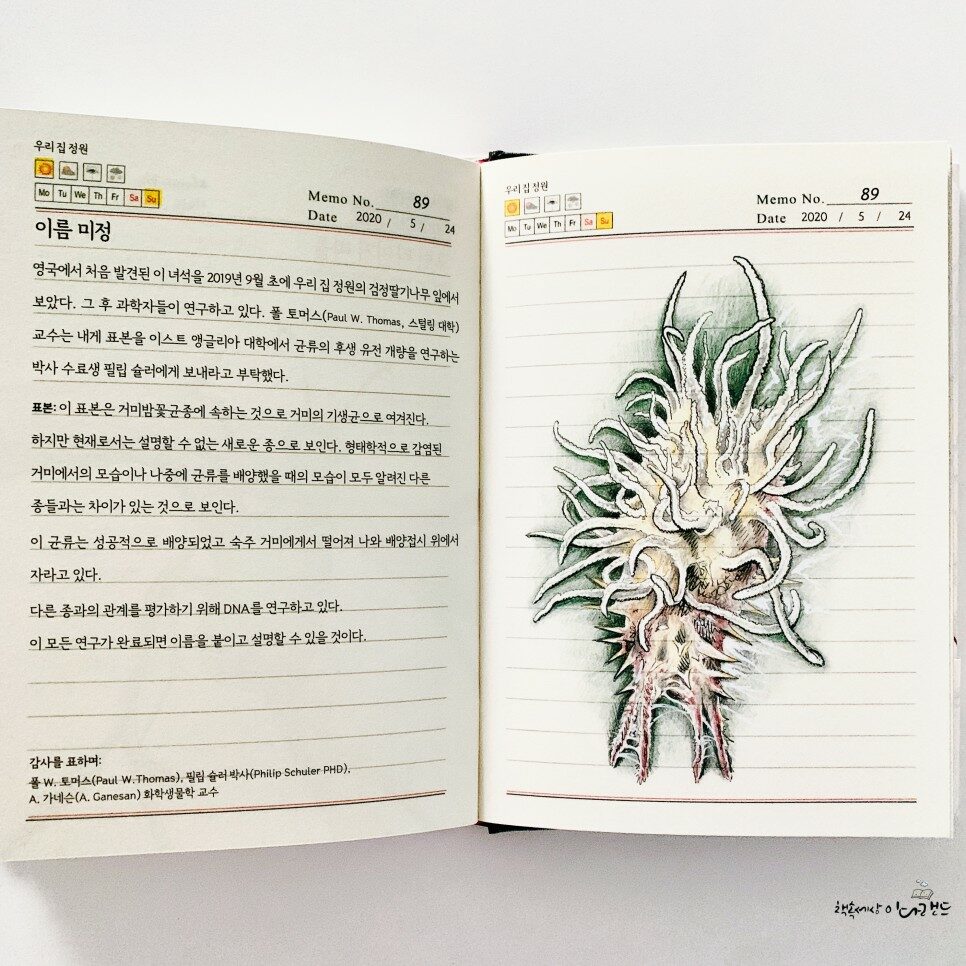 우리 집 정원
Mo Tu We Th Fr Sa Su
Memo No. 89
Date 2020 / 5 / 24
이름 미정
영국에서 처음 발견된 이 녀석을 2019년 9월 초에 우리 집 정원의 검정딸기나무 잎에서
보았다. 그 후 과학자들이 연구하고 있다. 폴 토머스(Paul W. Thomas, 스털링 대학)
교수는 내게 표본을 이스트 앵글리아 대학에서 균류의 후생 유전 개량을 연구하는
박사 수료생 필립 슐러에게 보내라고 부탁했다.
표본: 이 표본은 거미밤꽃균종에 속하는 것으로 거미의 기생균으로 여겨진다.
하지만 현재로서는 설명할 수 없는 새로운 종으로 보인다. 형태학적으로 감염된
거미에서의 모습이나 나중에 균류를 배양했을 때의 모습이 모두 알려진 다른
종들과는 차이가 있는 것으로 보인다.
이 균류는 성공적으로 배양되었고 숙주 거미에게서 떨어져 나와 배양접시 위에서
자라고 있다.
다른 종과의 관계를 평가하기 위해 DNA를 연구하고 있다.
이 모든 연구가 완료되면 이름을 붙이고 설명할 수 있을 것이다.
감사를 표하며:
폴 W. 토머스(Paul W.Thomas), 필립 슐러 박사(Philip Schuler PHD),
A. 가네슨(A. Ganesan) 화학생물학 교수
우리 집 정원
Mo Tu We Th Fr Sa Su
Memo No. 89
Date 2020 / 5 / 24
책속세상 이다랜드